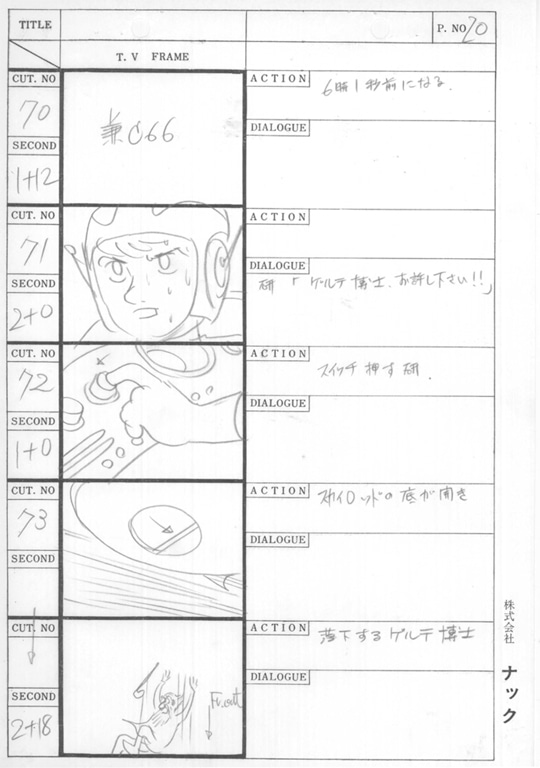 TITLE
P. NO 20
T. V FRAME
CUT. NO
70
SECOND
1+12
兼C66
ACTION
6時1秒前になる.
DIALOGUE
CUT. NO
71
SECOND
2+0
ACTION
DIALOGUE
研「ゲルテ博士、お許し下さい!!」
CUT. NO
72
SECOND
1+0
ACTION
スイッチ押す研.
DIALOGUE
CUT. NO
73
SECOND
ACTION
スカイロッドの底が開き
DIALOGUE
CUT. NO
SECOND
2+18
ACTION
落下するゲルテ博士
DIALOGUE
株式会社 ナック